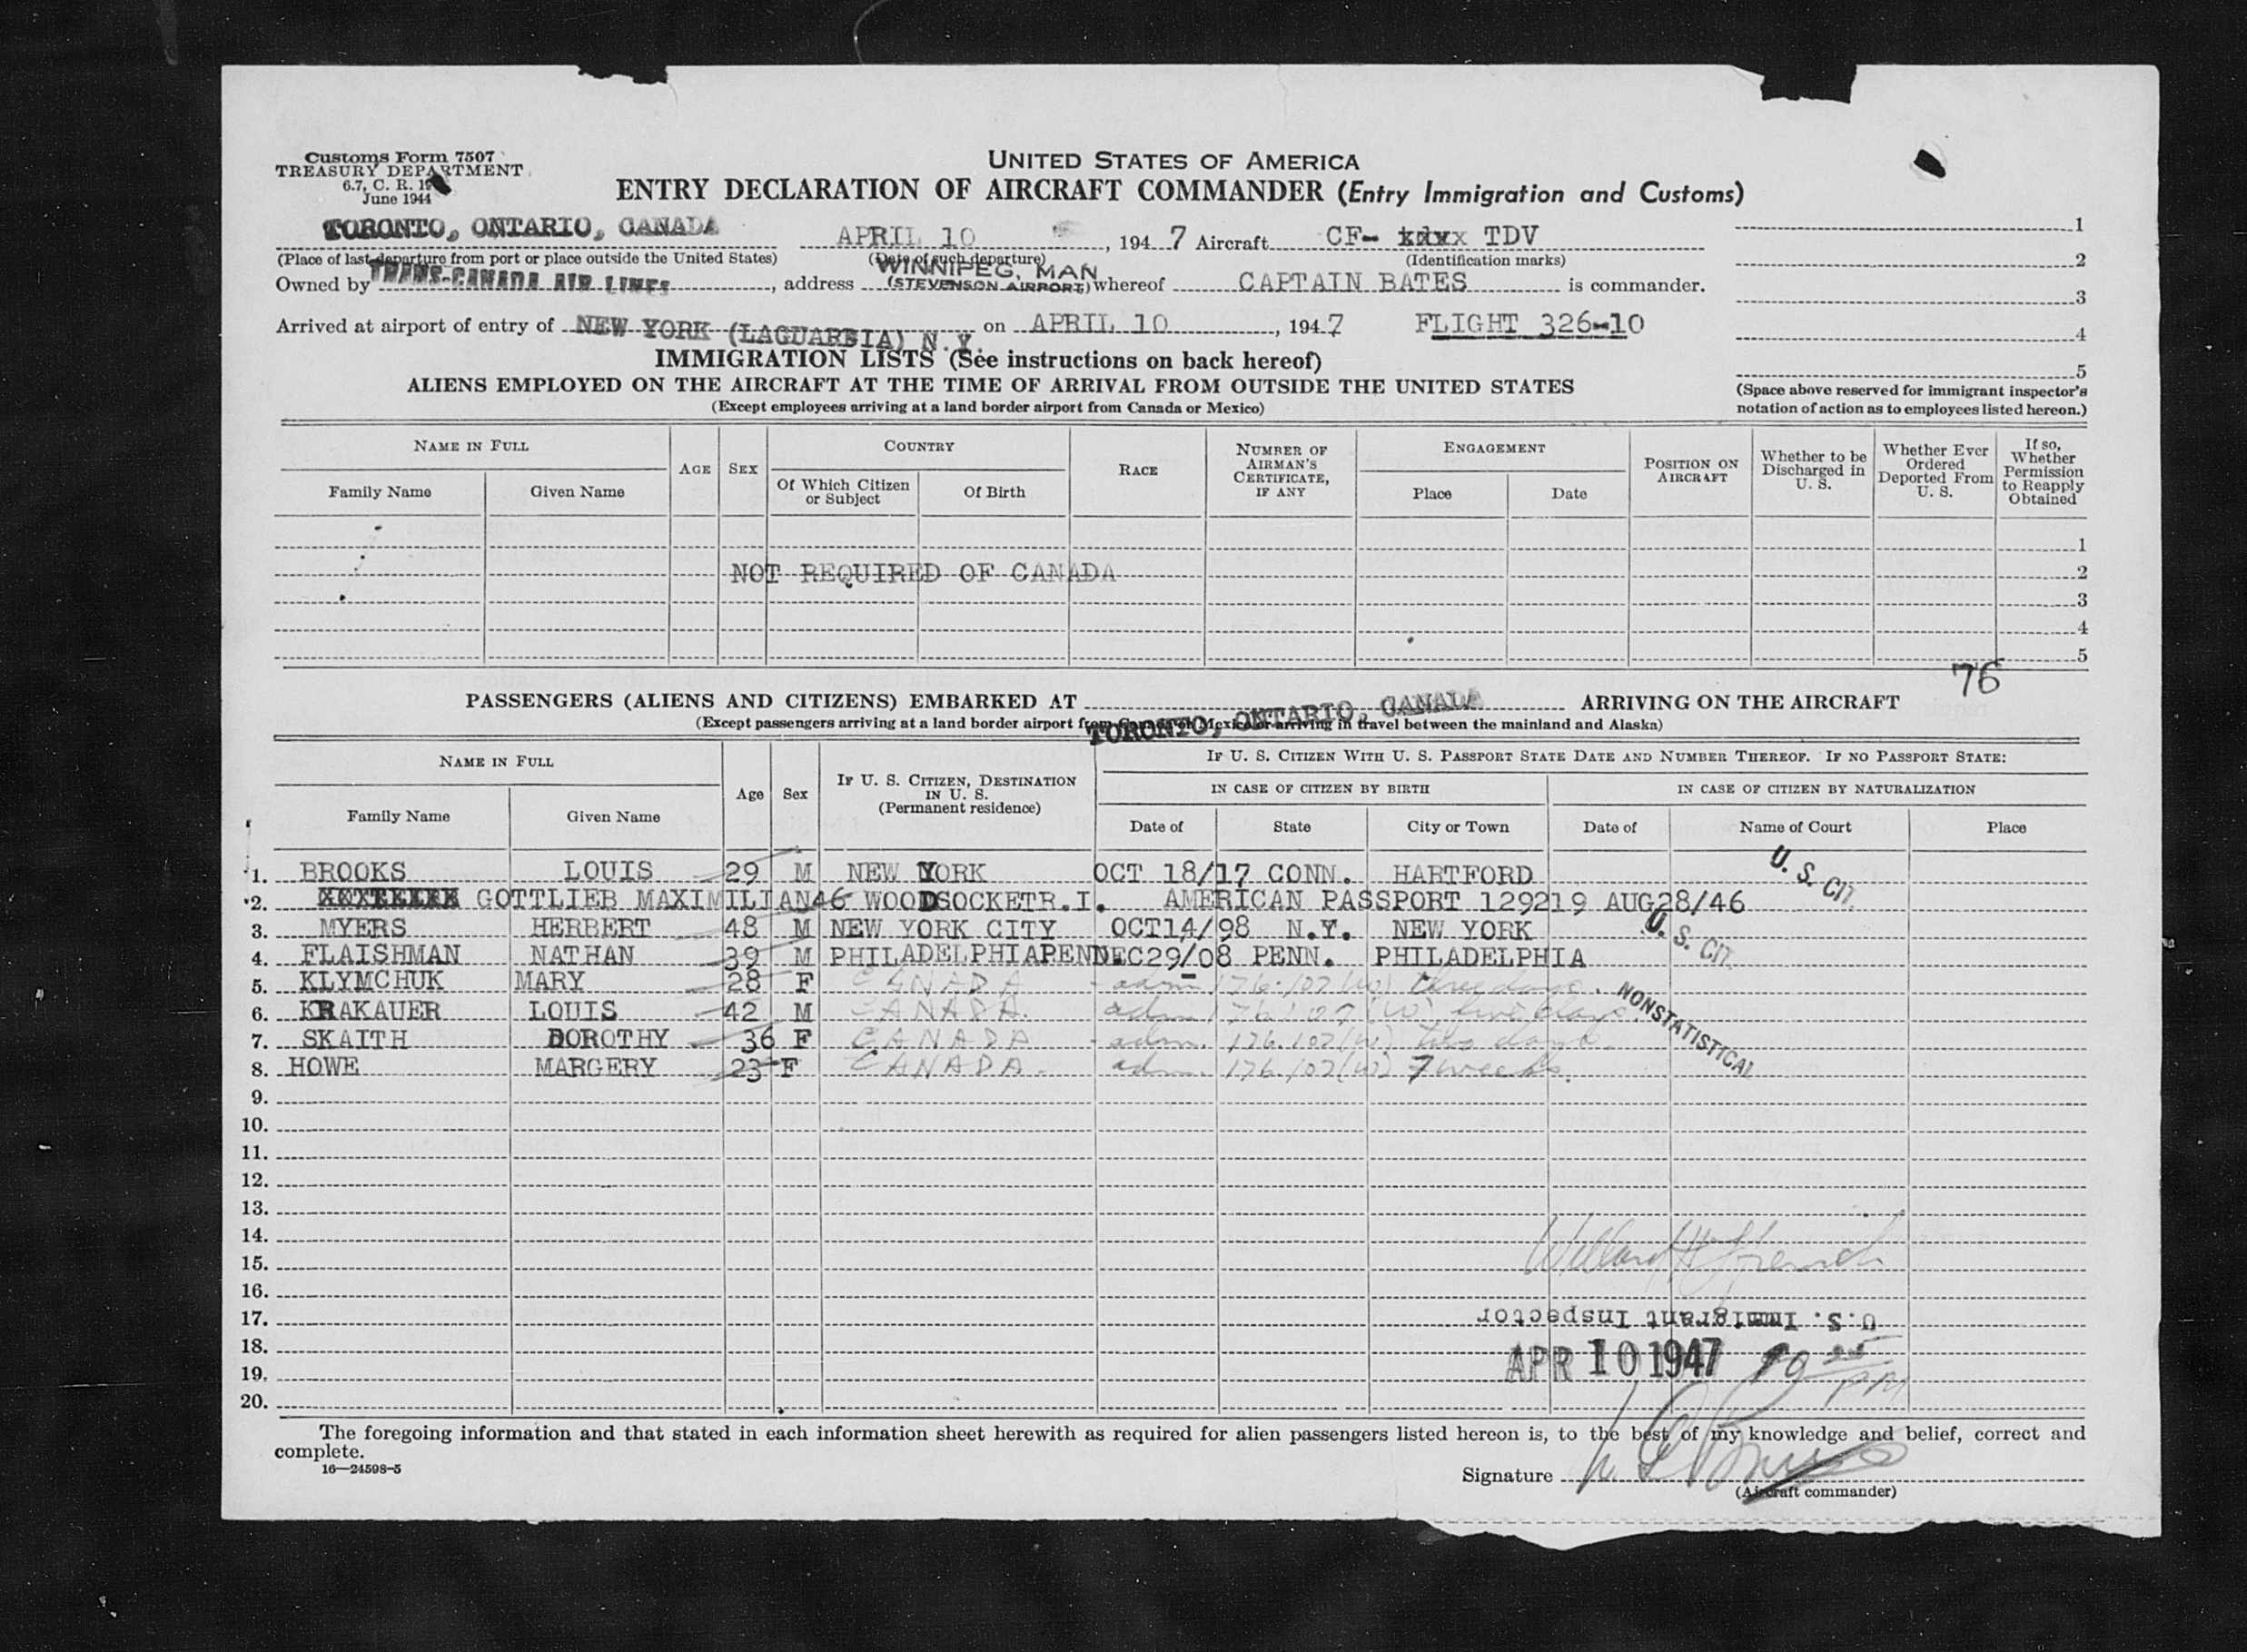 Customs Form 7507
TREASURY DEPARTMENT
6.7, C. R. 19
June 1944
UNITED STATES OF AMERICA
ENTRY DECLARATION OF AIRCRAFT COMMANDER (Entry Immigration and Customs)
TORONTO, ONTARIO, CANADA APRIL 10, 1947 Aircraft CF- TDV
(Place of last departure from port or place outside the United States) (Date of such departure) (Identification marks)
Owned by TRANS-CANADA AIR LINES, address WINNIPEG, MAN (STEVENSON AIRPORT) whereof CAPTAIN BATES is commander.
Arrived at airport of entry of NEW YORK (LAGUARDIA) N.Y. on APRIL 10, 1947 FLIGHT 326-10
1
2
3
4
5
(Space above reserved for immigrant inspector's notation of action as to employees listed hereon.)
IMMIGRATION LISTS (See instructions on back hereof)
ALIENS EMPLOYED ON THE AIRCRAFT AT THE TIME OF ARRIVAL FROM OUTSIDE THE UNITED STATES
(Except employees arriving at a land border airport from Canada or Mexico)
NAME IN FULL AGE SEX COUNTRY RACE NUMBER OF AIRMAN'S CERTIFICATE, IF ANY ENGAGEMENT POSITION ON AIRCRAFT Whether to be Discharged in U. S. Whether Ever Ordered Deported From U. S. If so, Whether Permission to Reapply Obtained
Family Name Given Name Of Which Citizen or Subject Of Birth Place Date
1
NOT REQUIRED OF CANADA 2
3
4
5
76
PASSENGERS (ALIENS AND CITIZENS) EMBARKED AT TORONTO, ONTARIO, CANADA ARRIVING ON THE AIRCRAFT
(Except passengers arriving at a land border airport from Canada or Mexico or arriving in travel between the mainland and Alaska)
NAME IN FULL Age Sex IF U. S. CITIZEN, DESTINATION IN U. S. (Permanent residence) IF U. S. CITIZEN WITH U. S. PASSPORT STATE DATE AND NUMBER THEREOF. IF NO PASSPORT STATE:
IN CASE OF CITIZEN BY BIRTH IN CASE OF CITIZEN BY NATURALIZATION
Family Name Given Name Date of State City or Town Date of Name of Court Place
1. BROOKS LOUIS 29 M NEW YORK OCT 18/17 CONN. HARTFORD U. S. CIT.
2. GOTTLIEB MAXIMILIAN46 WOODSOCKETR.I. AMERICAN PASSPORT 129219 AUG28/46
3. MYERS HERBERT 48 M NEW YORK CITY OCT14/98 N.Y. NEW YORK U. S. CIT.
4. FLAISHMAN NATHAN 39 M PHILADELPHIAPENN.DEC29/08 PENN. PHILADELPHIA
5. KLYMCHUK MARY 28 F CANADA adm 176.107(w) three days. NONSTATISTICAL
6. KRAKAUER LOUIS 42 M CANADA. adm 176.107(w) five days.
7. SKAITH DOROTHY 36 F CANADA adm. 176.107(w) two days.
8. HOWE MARGERY 23 F CANADA. adm. 176.107(w) 7 weeks.
9.
10.
11.
12.
13.
14.
15.
16.
17.
18.
19.
20.
Willard H French
U.S. Immigrant Inspector
APR 10 1947 PM
The foregoing information and that stated in each information sheet herewith as required for alien passengers listed hereon is, to the best of my knowledge and belief, correct and
complete.
16—24598-5
Signature
(Aircraft commander)